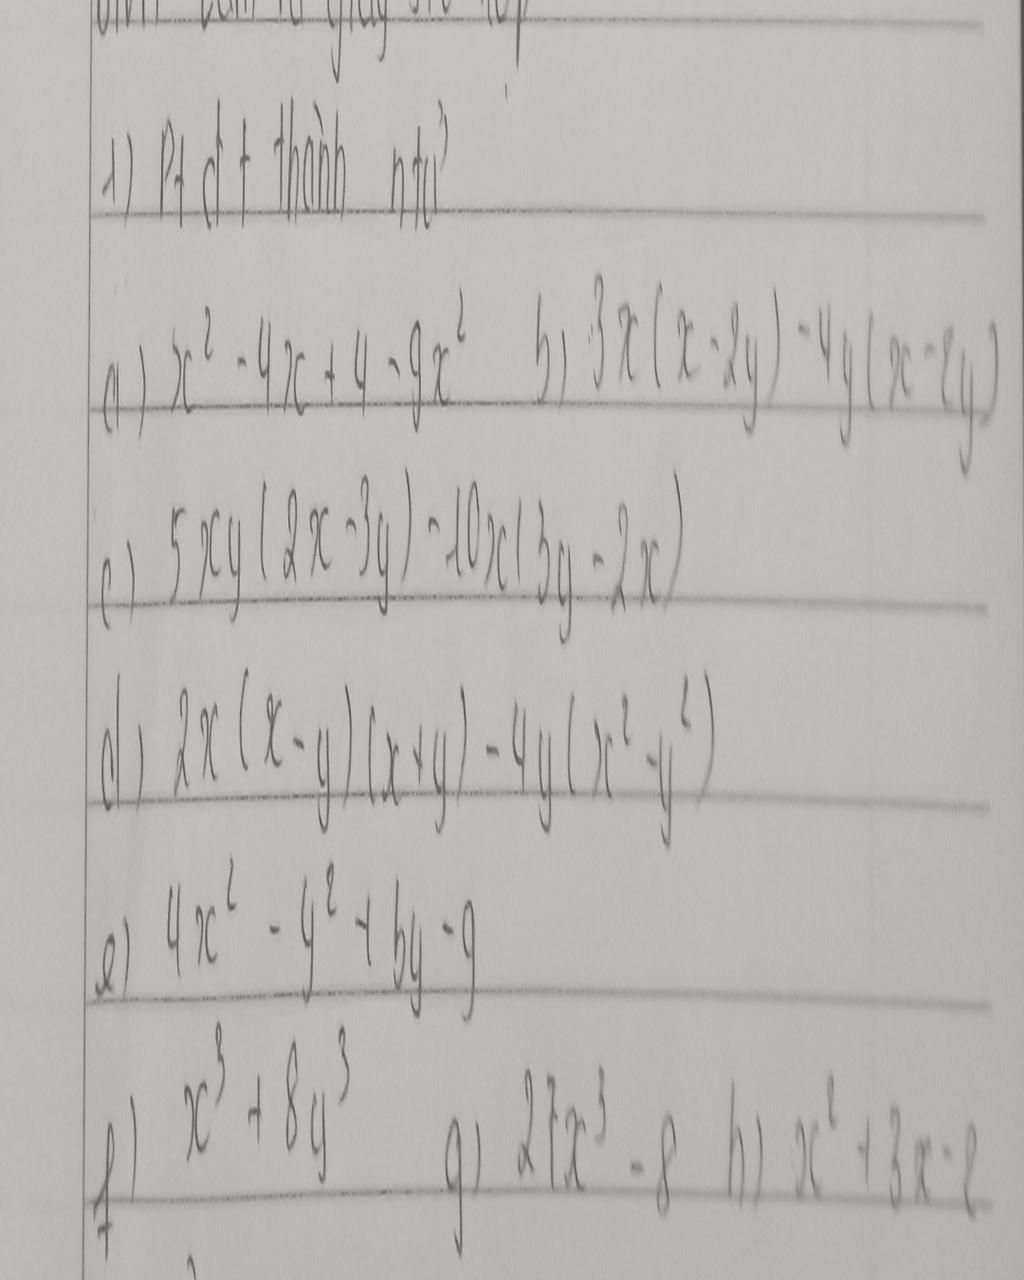 1) Pt đt thành ntử
a) x² - 4x + 4 - 9x² b) 3x(x - 2y) - 4y(x - 2y)
c) 5xy(2x - 3y) - 10x(3y - 2x)
d) 2x(x - y)(x + y) - 4y(x² - y²)
e) 4x² - y² + 6y - 9
f) x³ + 8y³ g) 27x³ - 8 h) x² + 3x - 2